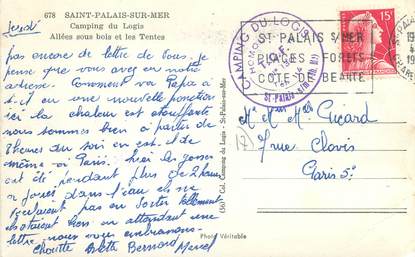 678 SAINT-PALAIS-SUR-MER
Camping du Logis
Allées sous bois et les Tentes
Jeudi
pas encore de lettre de vous. Je
pense que vous avez eu notre
adresse. Comment va Papa a
t-il eu une nouvelle ponction
ici la chaleur est étouffante
nous sommes bien à partir de
8 heures du soir est-il de
même à Paris. hier les gosses
ont été pendant plus de 2 heures
à jouer dans l'eau ils ne
voulaient pas en sortir tellement
ils étaient bien en attendant une
lettre nous vous embrassons
Bernard
(50) - Col. Camping du Logis - St-Palais-sur-Mer
Photo Véritable
CAMPING DU LOGIS
ST-PALAIS S/MER
PLAGES FORETS
COTE DE BEAUTÉ
15F
M. et Mme Cucard
7 rue Clovis
Paris 5e